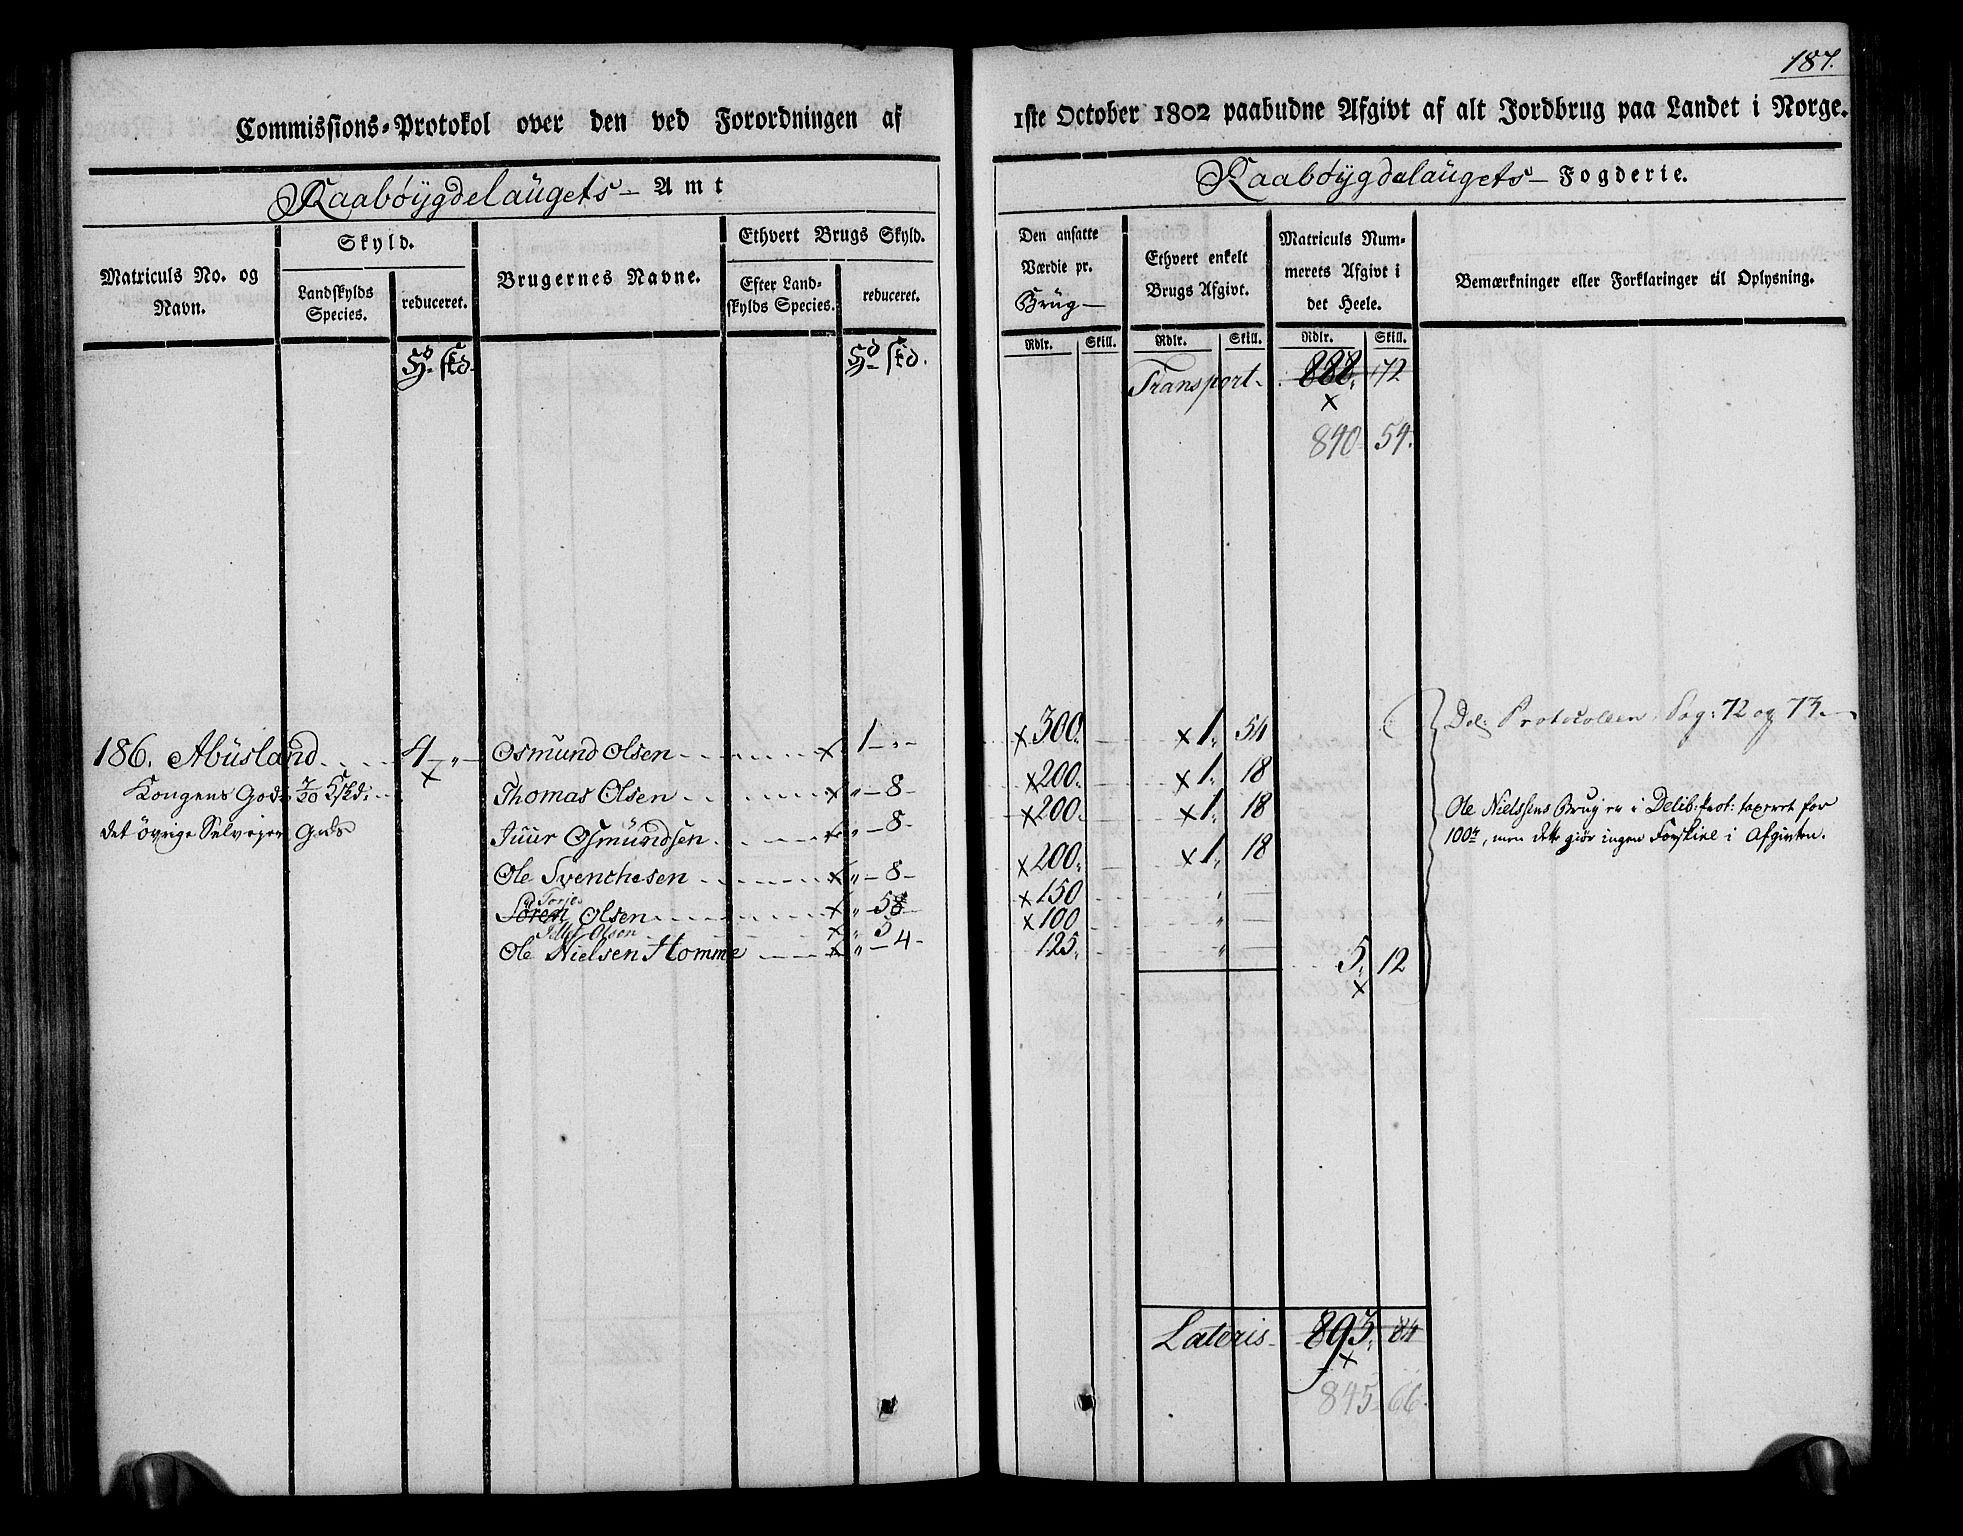 187.
Commissions-Protokol over den ved Forordningen af 1ste October 1802 paabudne Afgivt af alt Jordbrug paa Landet i Norge.
Raabøygdelaugets Amt
Raabøygdelaugets Fogderie.
Matriculs No. og Navn.
Skyld.
Landskylds Species.
reduceret.
Brugernes Navne.
Ethvert Brugs Skyld.
Efter Landskylds Species.
reduceret.
Den ansatte Værdie pr. Brüg
Ethvert enkelt Brugs Afgivt.
Matriculs Nummerets Afgivt i det Heele.
Bemærkninger eller Forklaringer til Oplysning.
Rdlr. Skill. Rdlr. Skill. Rdlr. Skill.
Hd skd. Hd skd.
Transport 888. 72
x
840 54.
Del: Protocolen, Pag: 72 og 73.
186. Abüsland 4 „ Osmund Olsen x 1 „ x 300. x 1. 54
x
Kongens Gods 7/20 Hskd: Thomas Olsen x „ 8 x 200. x 1. 18
det övrige Selvejer Gods Juur Osmündsen x „ 8 x 200. x 1. 18
Ole Nielssens Brug er i Delib: Prot: taxeret for
100r, men dette giör ingen Forskiel i Afgivten.
Ole Svenchesen x „ 8 x 200. x 1. 18
Torje
Sören Olsen x „ 58 x 150 „
Olsen x „ 3 x 100 „
Ole Nielsen Homme x „ 4 125. „
5. 12
x
Lateris 893. 84
x
845 66